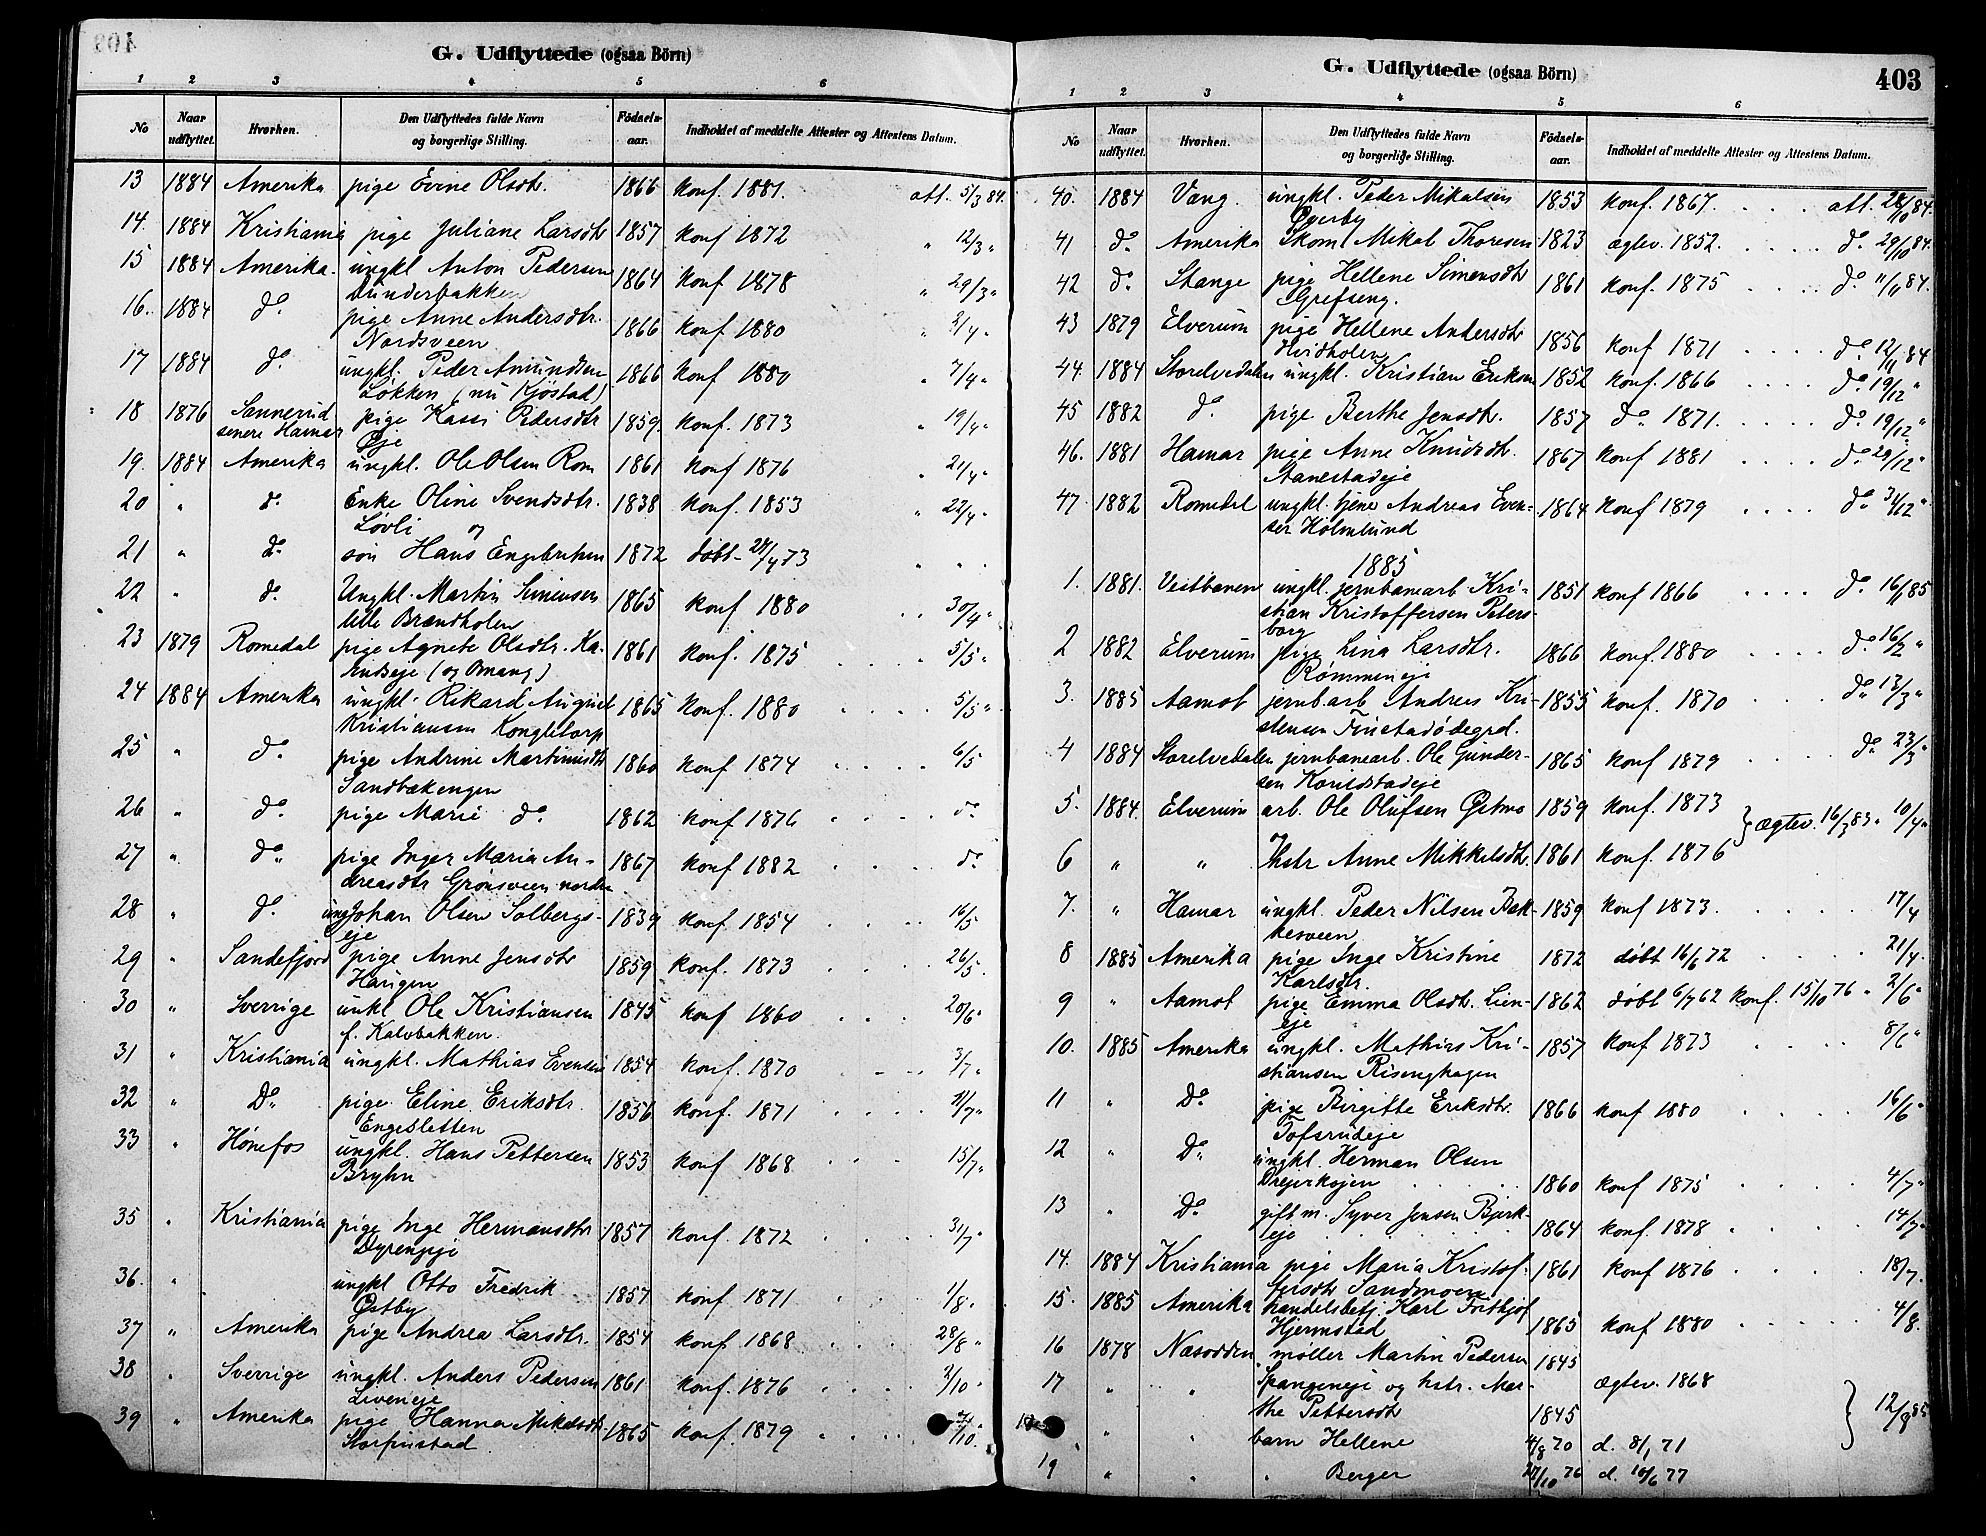 G. Udflyttede (ogsaa Börn)
1 2 3 4 5 6
No Naar udflyttet. Hvorhen. Den Udflyttedes fulde Navn og borgerlige Stilling. Födsels-aar. Indholdet af meddelte Attester og Attestens Datum.
13 1884 Amerika pige Evine Olsdtr. 1866 konf. 1881. att. 5/3 84.
14. 1884 Kristiania pige Juliane Larsdtr 1857 konf 1872 " 12/3 "
15 1884 Amerika. ungkl Anton Pedersen 1864 konf 1878 " 29/3 "
Dunderbakken
16. 1884 do. pige Anne Andersdtr. 1866 konf 1880 " 2/4 "
Nordsveen
17 1884 do. ungkl. Peder Amundsen 1866 konf 1880 " 7/4 "
Løkken (nu Kjøstad)
18 1876 Sannerud pige Kassi Pedersdtr 1859. konf. 1873 " 19/4 "
senere Hamar Eje
19. 1884 Amerika ungkl. Ole Olsen Rom 1861 konf 1876 " 21/4 "
20 " do. Enke Oline Svendsdtr. 1838 konf. 1853 " 22/4 "
Løvli og
21 " do. søn Hans Engebretsen 1872 døbt 24/4 73 " " "
22 " do. Ungkl. Martin Simensen 1865 konf 1880 " 30/4 "
lille Brændholen
23 1879 Romedal pige Agnete Olsdtr. Ka- 1861 konf. 1875 . . . . 5/5 "
lndseje (og Omang)
24 1884 Amerika ungkl. Rikard August 1865 konf. 1880 . . . . 5/5 "
Kristiansen Kongletorp
25 " do. pige Andrine Martinusdtr 1860 konf 1874 . . . . 6/5
Sandbakengen
26 " do. pige Marie do. 1862 konf 1876 . . . . do.
27 " do. pige Inger Maria An- 1867 konf 1882 . . . . do.
dreasdtr Grønsveen nordre
28 " do. ungk Johan Olsen Solbergs- 1839 konf 1854 . . . . 16/5
eje
29 " Sandefjord pige Anne Jensdtr 1859 konf. 1873 . . . . 26/5.
Haugen
30 " Sverrige unkl Ole Kristiansen 1845 konf 1860 . . . 20/6 "
f. Kalvbakken.
31 " Kristiania ungkl. Mathias Evensen 1854 konf. 1870 . . . . 3/7 "
32 " Do. pige Eline Eriksdtr. 1856 konf. 1871 . . . . 11/7 "
Engesletten
33 " Hønefos ungkl. Hans Pettersen 1853 konf 1868 . . . . 15/7 "
Bryhn
35 " Kristiania pige Inge Hermansdtr 1857 konf. 1872 . . . . 31/7 "
Dyreneje
36. " ungkl Otto Fredrik 1857 konf. 1871 . . . . 1/8 "
Østby
37 " Amerika pige Andrea Larsdtr. 1854 konf. 1868 . . . . 28/8 "
38 " Sverrige ungkl. Anders Pedersen 1861 konf. 1876 . . . . 2/10 "
Liveneje
39 " Amerika pige Hanna Mikelsdtr 1865 konf. 1879 . . . . /10.
Storfinstad
G. Udflyttede (ogsaa Börn)
403
1 2 3 4 5 6
No Naar udflyttet. Hvorhen. Den Udflyttedes fulde Navn og borgerlige Stilling. Födsels-aar. Indholdet af meddelte Attester og Attestens Datum.
40. 1884 Vang. ungkl. Peder Mikalsen 1853 konf. 1867. . . . . att. 28/10 84.
Overby
41 do. Amerika Skom. Mikal Thoresen 1823 ægtev. 1852. . . . . do. 29/10 84.
42 do. Stange pige Hellene Simensdtr 1861 konf. 1875 . . . . do. 11/11 84.
Grefseng.
43 1879 Elverum pige Hellene Andersdtr 1856 konf 1871 . . . . do. 12/11 84
Hvidholen
44. 1884 Storelvedalen ungkl. Kristian Eriksen 1852 konf. 1866 . . . . do. 19/12 "
45 1882 do. pige Berthe Jensdtr. 1857 do. 1871. . . . . do. 19/12 "
46. 1881 Hamar pige Anne Knudsdtr. 1867 konf 1881 . . . . do. 29/12 "
Aanestadeje
47. 1882 Romedal ungkl. tjener Andreas Even- 1864 konf 1879 . . . . do. 31/12 "
sen Holmlund
1885
1. 1881. Vestbanen ungkl. jernbanearb Kri- 1851 konf 1866 . . . . do. 16/1 85
stian Kristoffersen Peters-
borg
2 1882 Elverum pige Lina Larsdtr. 1866 konf. 1880 . . . . do. 16/2 "
Rømmeneje
3. 1885 Aamot jernb.arb Andreas Kri- 1855 konf. 1870 . . . . do. 13/3 "
stensen Finstadødegrd.
4 1884 Storelvedalen jernbanearb. Ole Gunder- 1865 konf 1879 . . . . do. 23/3 "
sen Kørildstadeje
5. 1884. Elverum arb. Ole Olufsen Østmo 1859 konf. 1873 } ægtev. 16/3 83 " 10/4 "
og
6 " " Hstr Anne Mikkelsdtr. 1861 konf. 1876
7. " Hamar ungkl. Peder Nilsen Bak- 1859 konf 1873. . . . . 17/4
kesveen
8 1885 Amerika pige Inge Kristine 1872 døbt 16/6 72 . . . . 21/4.
Karlsdtr.
9 " Aamot pige Emma Olsdtr. Lien- 1862 døbt 6/7 62 konf. 15/10 76 " 2/6 "
eje
10. 1885 Amerika ungkl. Mathias Kri- 1857 konf 1873 . . . . 8/6 "
stiansen Risenghagen
11 " Do. pige Birgitte Eriksdtr. 1866 konf 1880 . . . . 16/6 "
Tofsrudeje
12 " Do. ungkl. Herman Olsen
Drejerkojen 1860 konf 1875 . . . . 4/7 "
13 " Do. gift m. Syver Jensen Bjerk-
eje 1864 konf. 1878 . . . . 14/7 "
14. 1884 Kristiania pige Maria Kristof- 1861 konf 1876 . . . . 18/7.
fersdtr Sandmoen
15. 1885 Amerika handelsbetj. Karl Frithjof
Hjermstad 1865 konf 1880 . . . . 4/8.
16 1878 Næsodden møller Martin Pedersen 1845
17 " " Spangeneje og hstr. Mar- ægtev. 1868
the Pettersdtr 1845 } 12/8 85
" " barn Hellene 4/8 70 d. 8/1 71
19 " " " Berger 27/10 76 d. 10/6 77